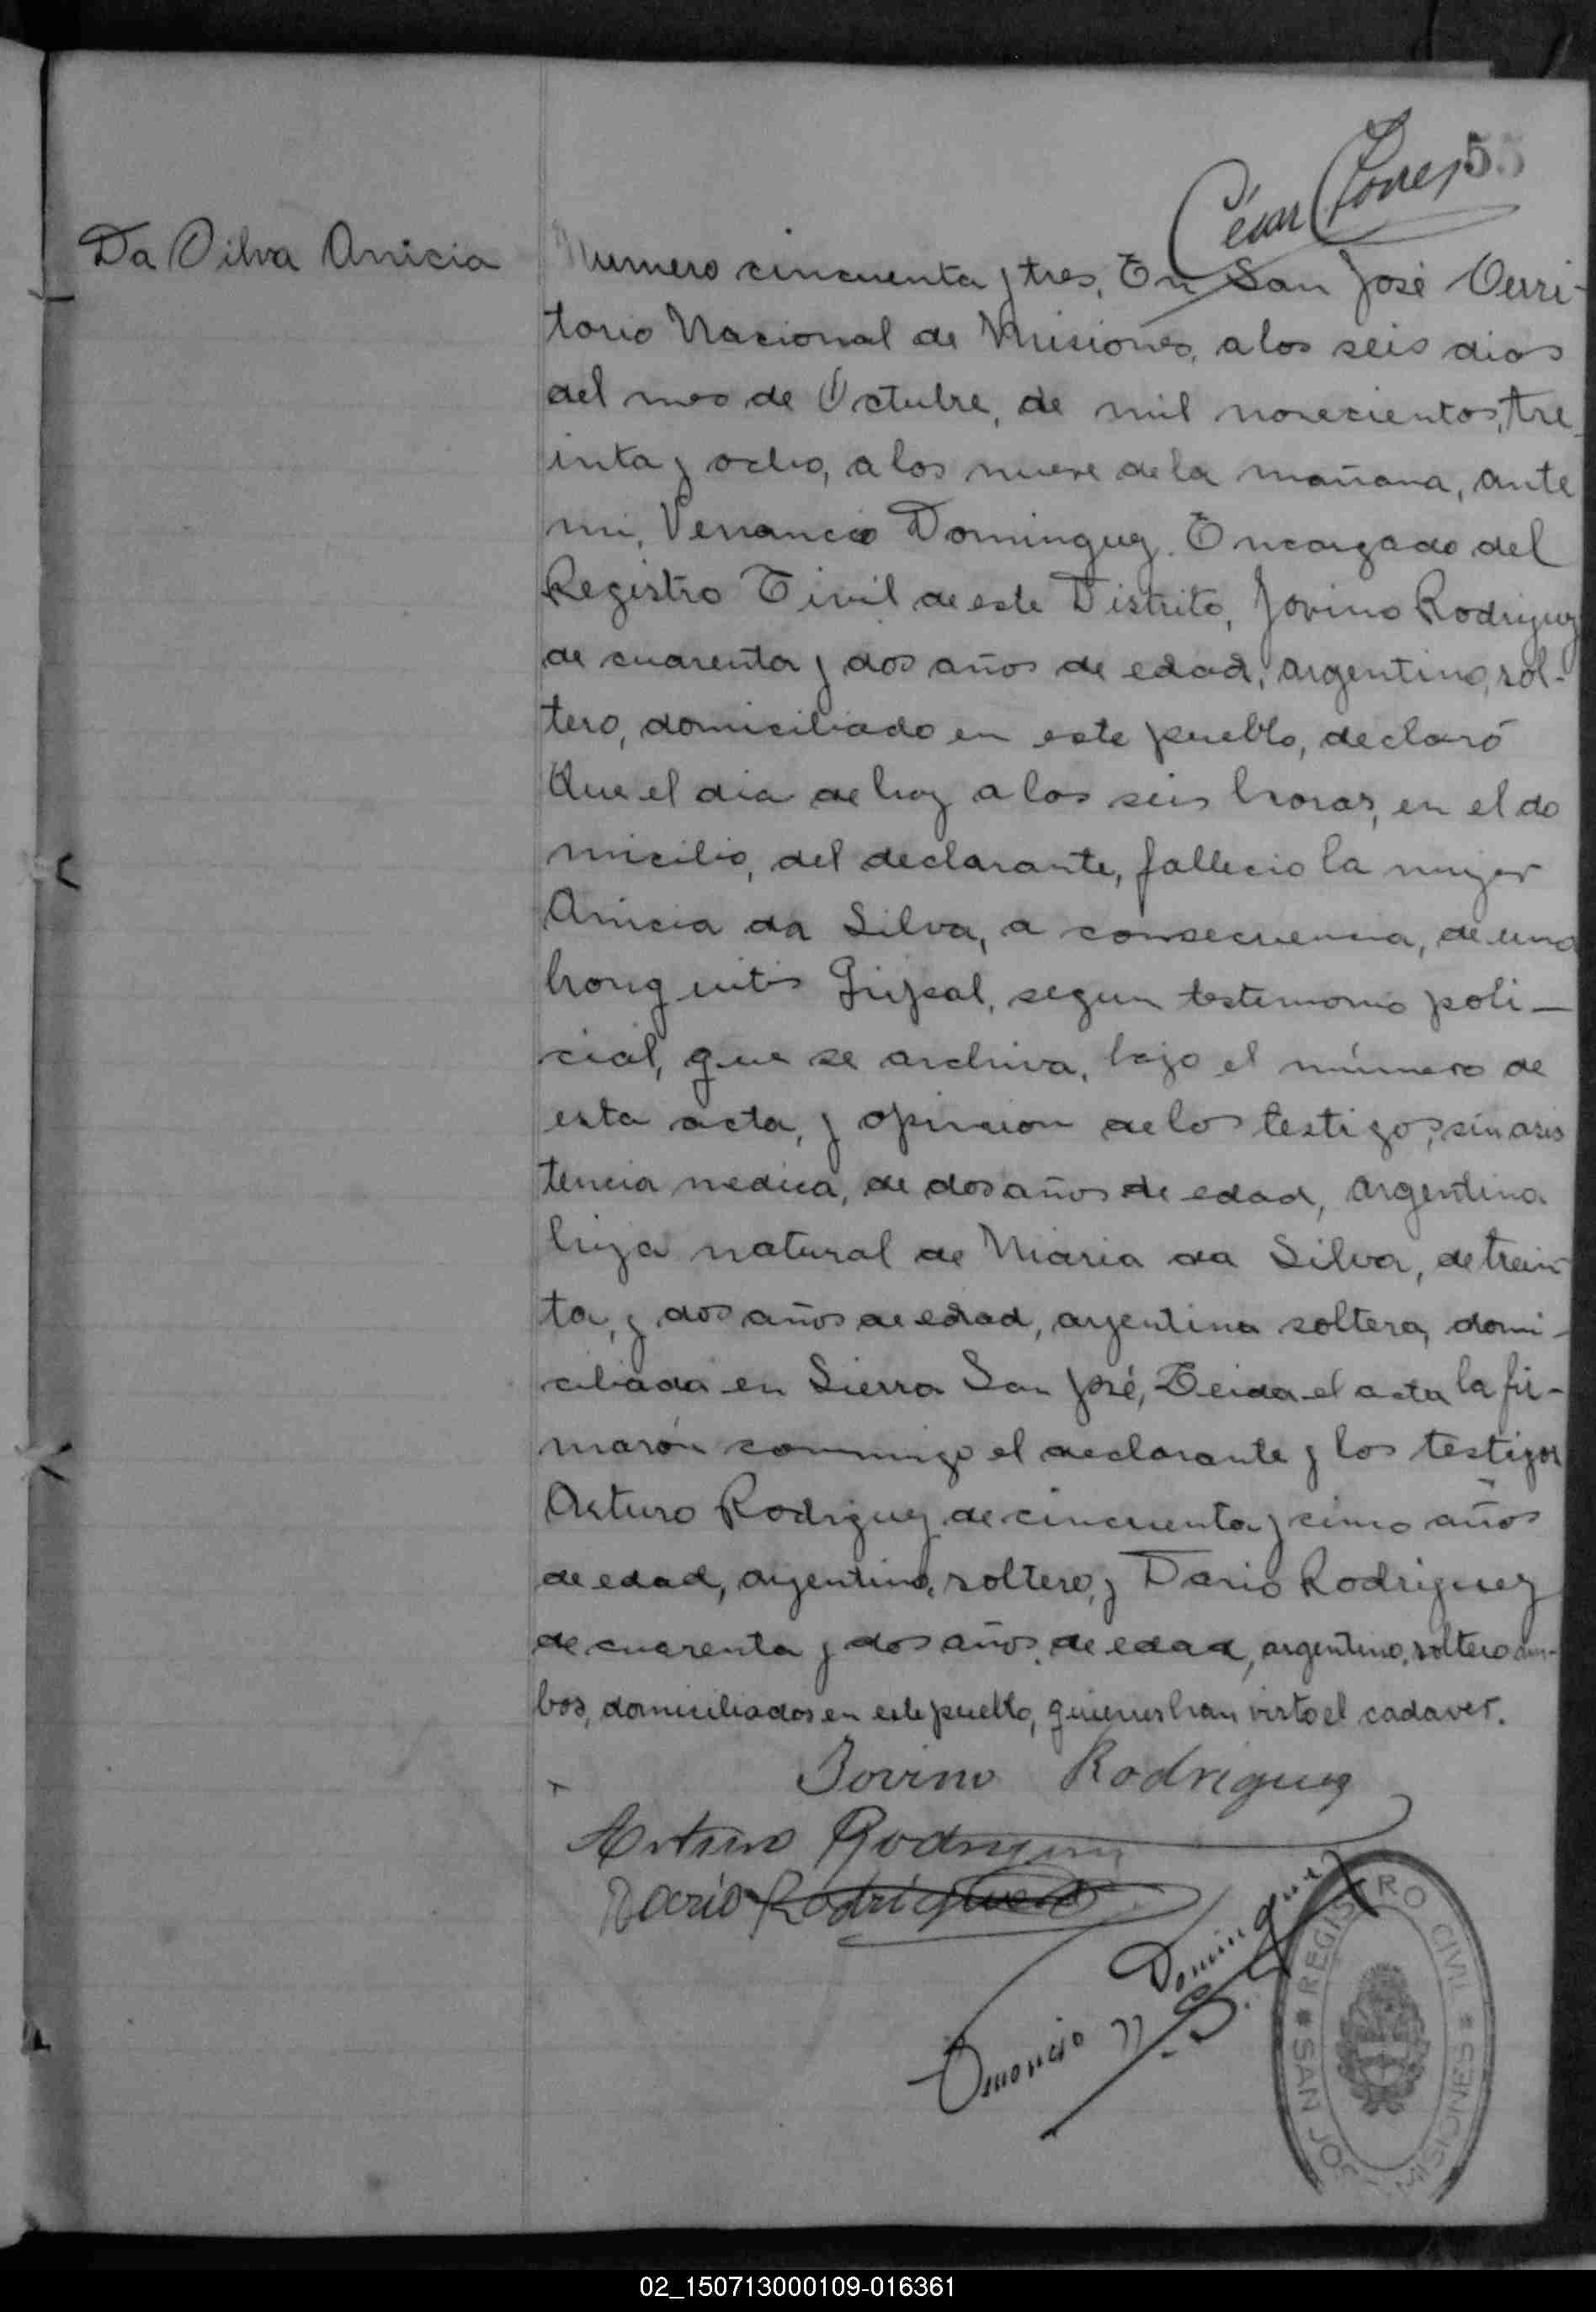 César Torres
55
Da Silva Anicia
Numero cincuenta y tres, En San José Terri-
torio Nacional de Misiones, a los seis dias
del mes de Octubre, de mil novecientos, tre
inta y ocho, a las nueve de la mañana, ante
mi, Venancio Dominguez. Encargado del
Registro Civil de este Distrito, Jovino Rodriguez
de cuarenta y dos años de edad, argentino, sol-
tero, domiciliado en este pueblo, declaró
Que el dia de hoy a las seis horas, en el do
micilio, del declarante, fallecio la mujer
Anicia da Silva, a consecuencia, de una
bronquitis Gripal, segun testimonio poli-
cial, que se archiva, bajo el número de
esta acta, y opinion de los testigos, sin asis
tencia medica, de dos años de edad, argentina
hija natural de Maria da Silva, de trein
ta, y dos años de edad, argentina soltera, domi-
ciliada en Sierra San José, Leida el acta la fir-
marón conmigo el declarante y los testigos
Arturo Rodriguez de cincuenta y cinco años
de edad, argentino, soltero, y Dario Rodriguez
de cuarenta y dos años, de edad, argentino, soltero am-
bos, domiciliados en este pueblo, quienes han visto el cadaver.
Jovino Rodriguez
Arturo Rodriguez
Dario Rodriguez
Dominguez
REGISTRO CIVIL * MISIONES
* SAN JOSE
02_150713000109-016361